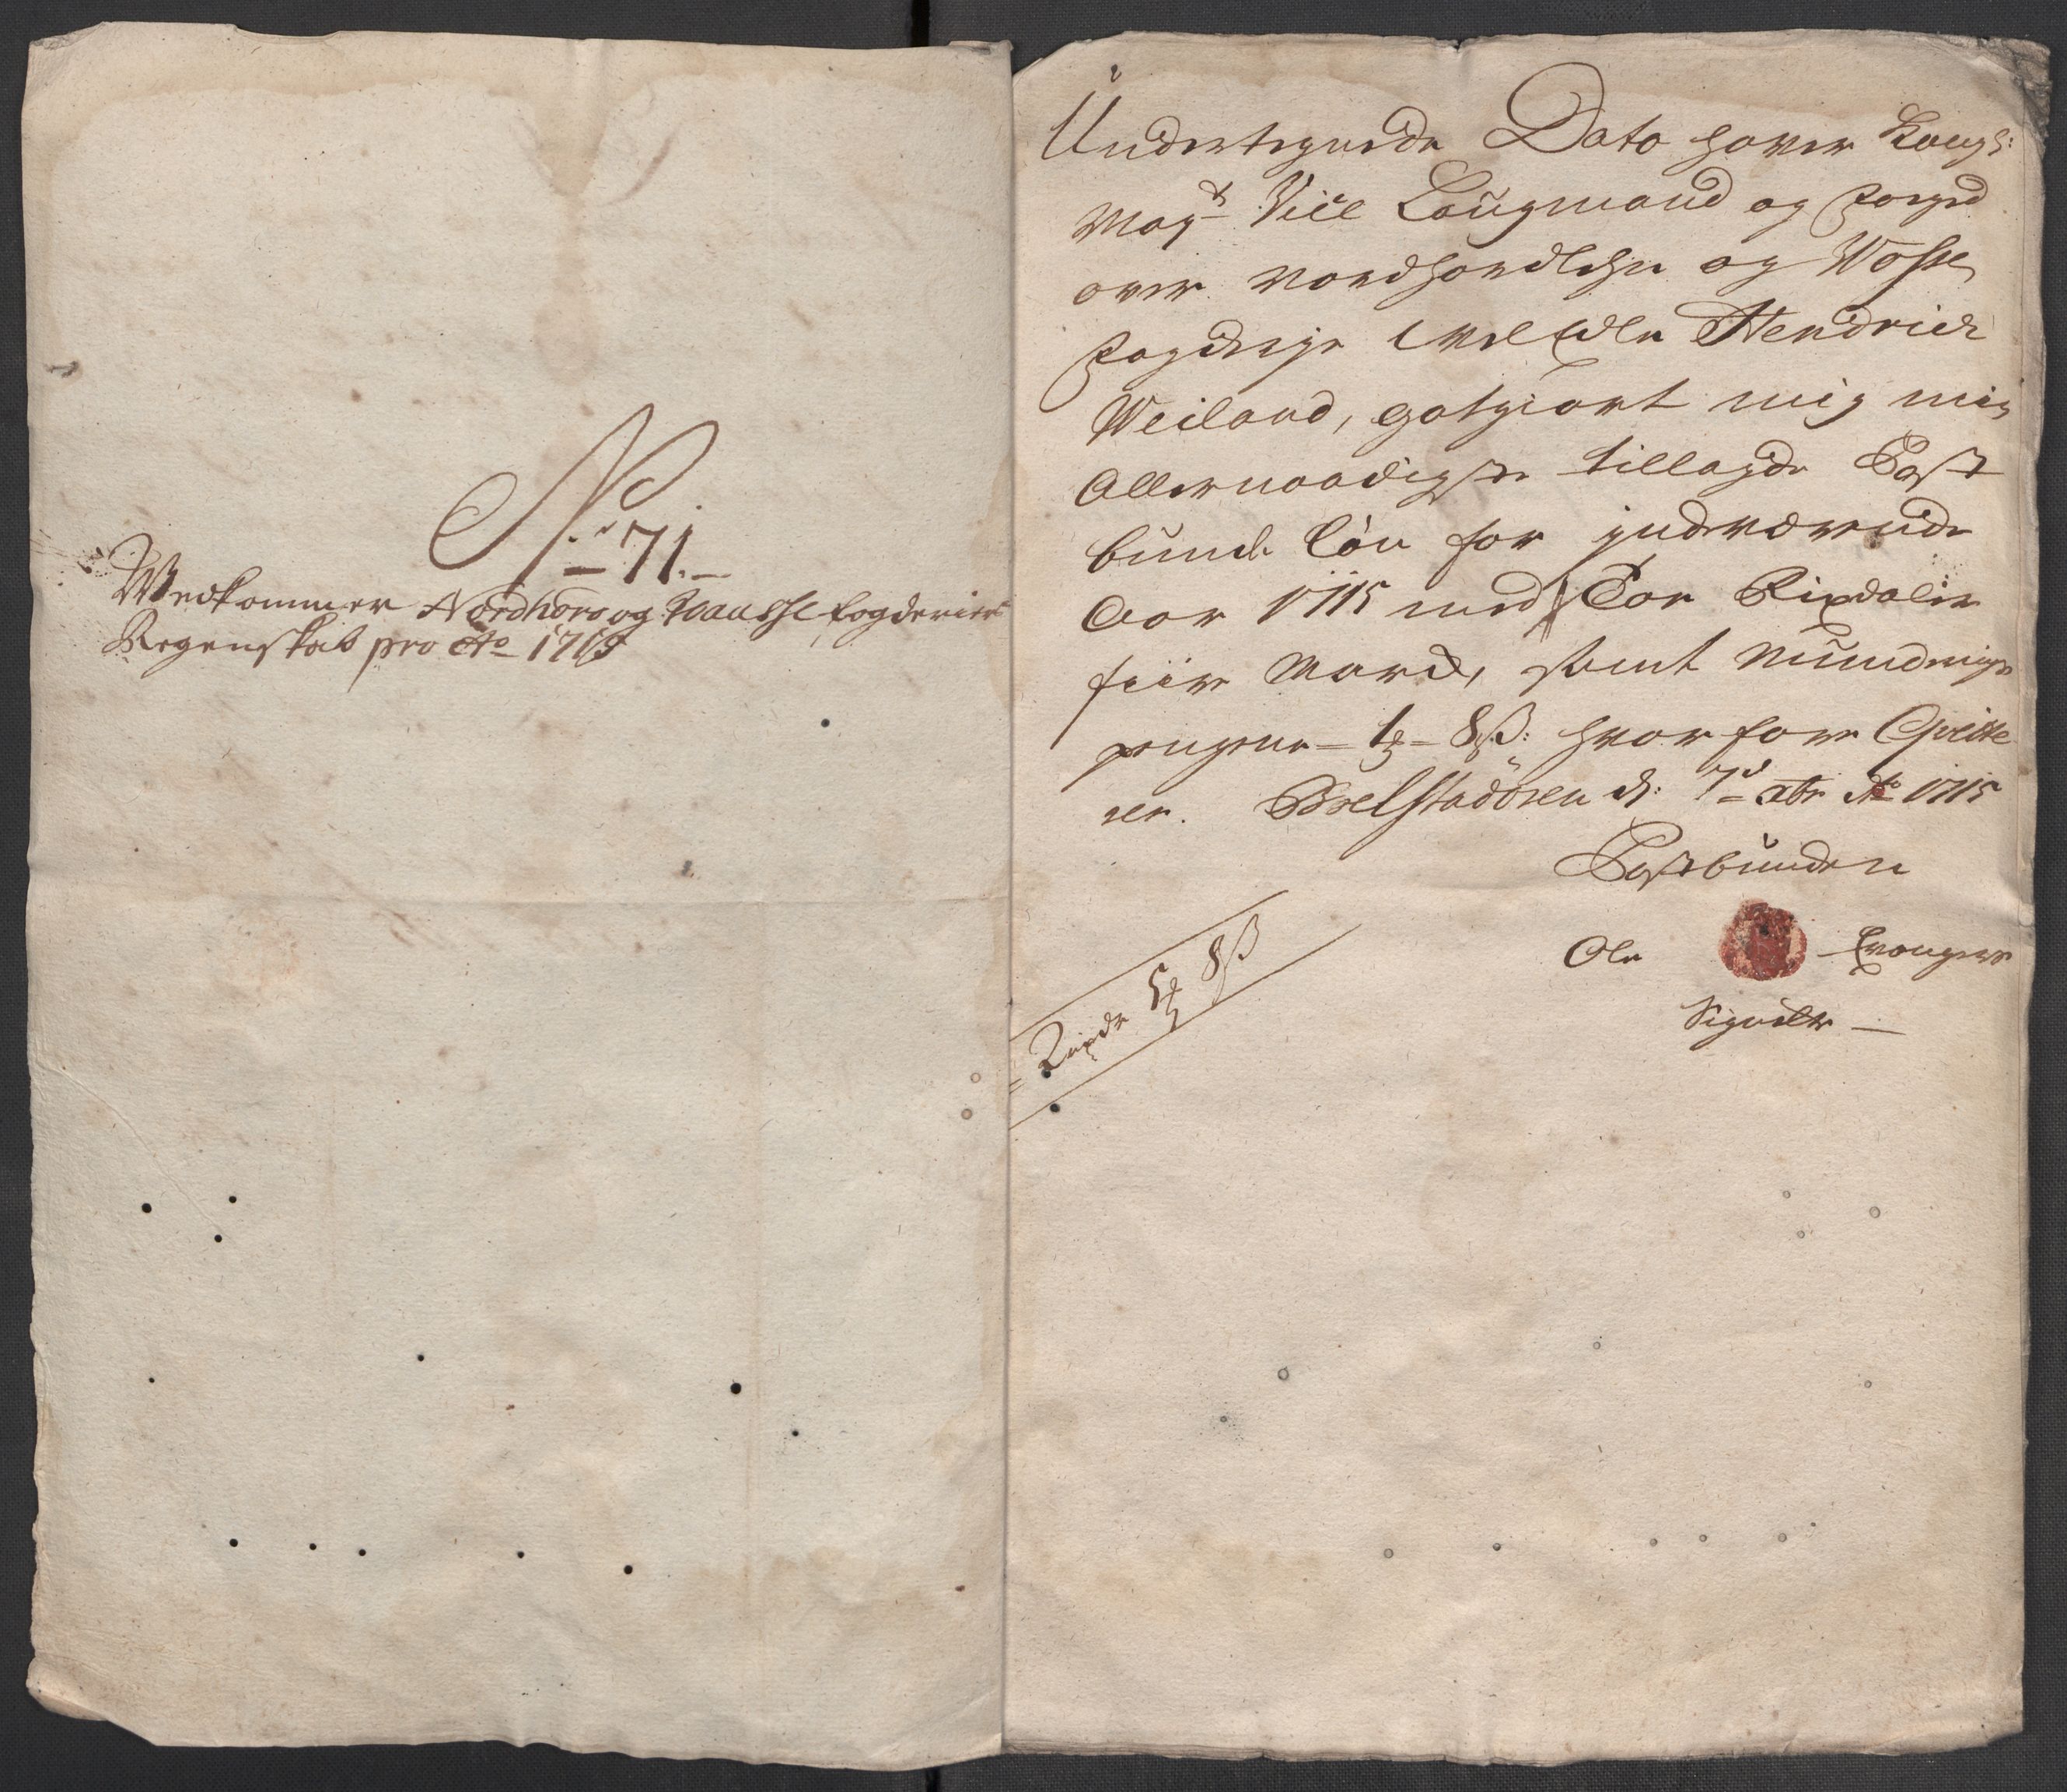 No 71.
Wedkommer Nordhors og Waasse fogderier
Regenskab pro Ao 1715
Undertegnede Dato hafver Kongl:
Mayts Vice Laugmand og Foged
over Nordhordlehn og Vosse
Fogderje Welædle Hendrich
Weiland, gotgiort mig min
Allernaadigste tillagde Post
bunde Løn for inderværende
Aar 1715 med Toe Rixdaler
fiire Marck, samt Munderings
pengene 1 8 ß: hvorfore Qvitte
rer. Sælstadøren d: 7d Xbr Ao 1715
Postbunden
Ole Evanger
Signeter
2 rixdr 5 8 ß